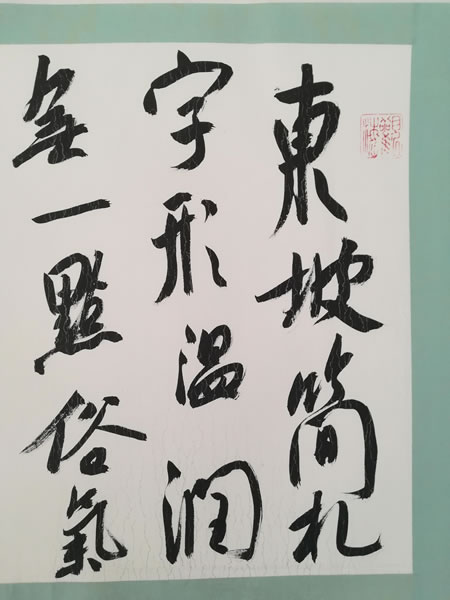 東坡簡札
字形温潤
無一點俗氣